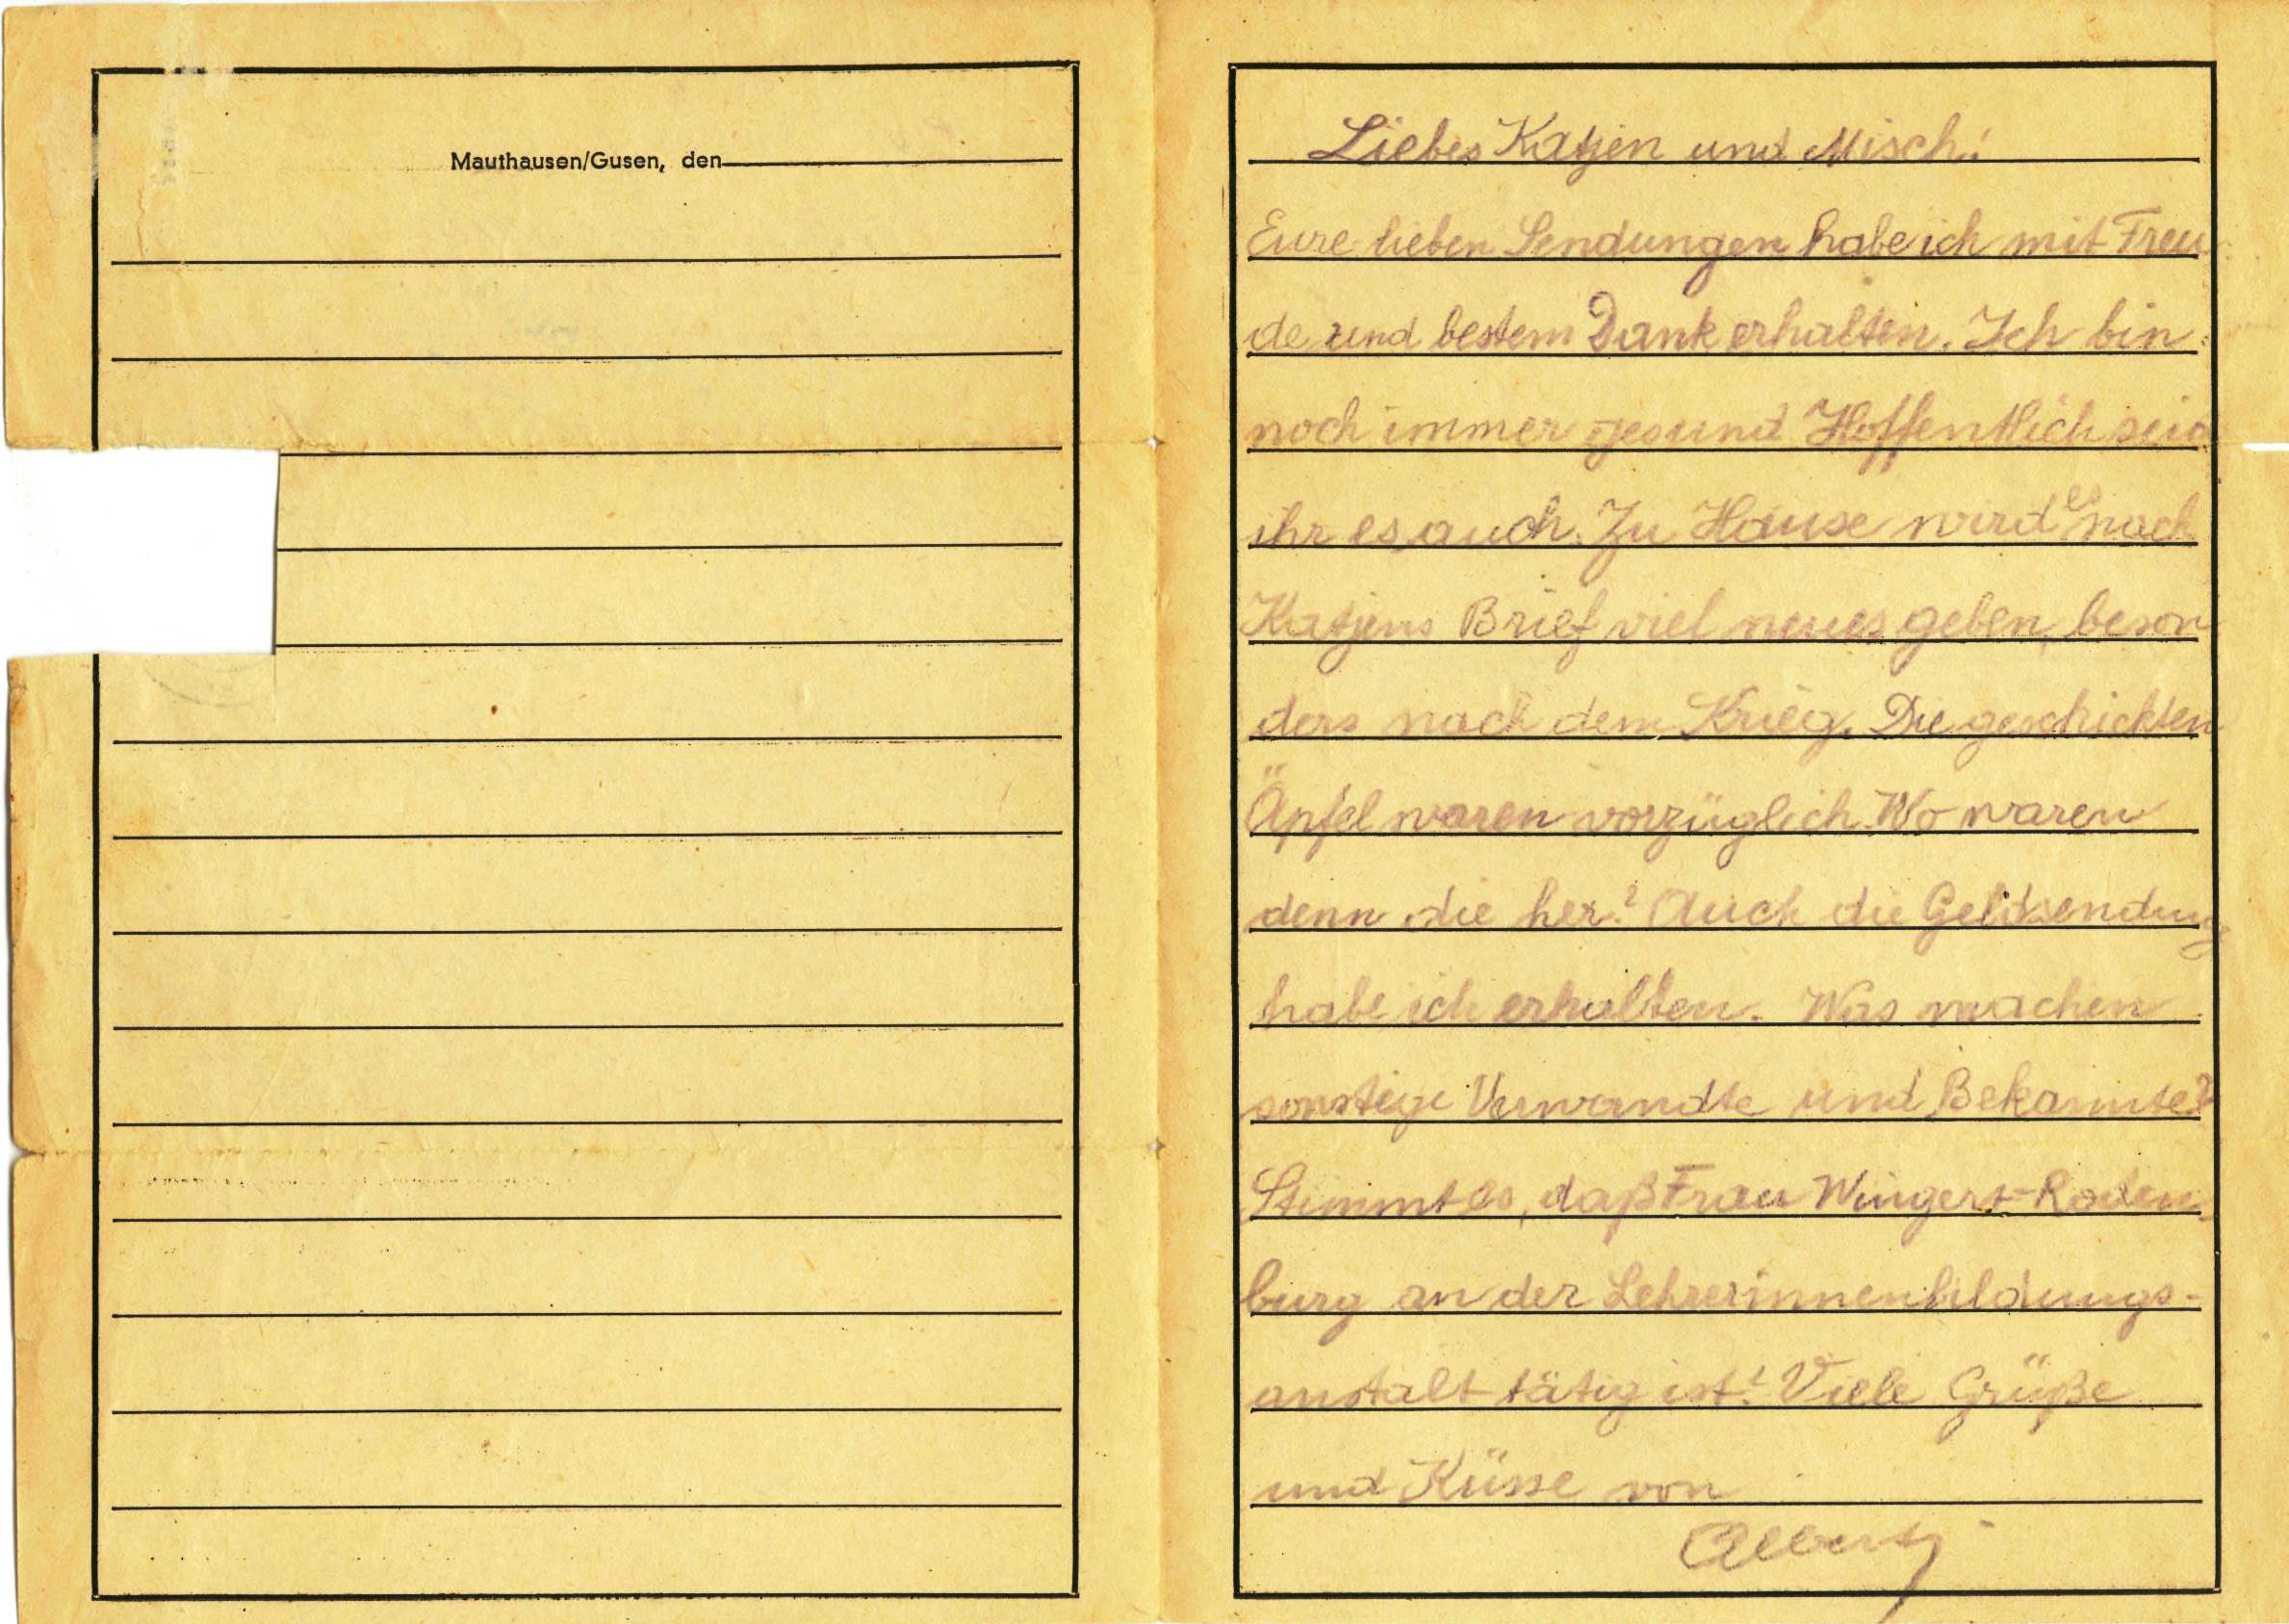 Mauthausen/Gusen, den
Liebes Katjen und Misch!
Eure lieben Sendungen habe ich mit Freu
de und bestem Dank erhalten. Ich bin
noch immer gesund Hoffentlich seid
ihr es auch. Zu Hause wird es nach
Katjens Brief viel neues geben, beson
ders nach dem Krieg. Die geschickten
Äpfel waren vorzüglich. Wo waren
denn die her? Auch die Geldsendung
habe ich erhalten. Was machen
sonstige Verwandte und Bekannte?
Stimmt es, daß Frau Wingert-Roden-
burg an der Lehrerinnenbildungs-
anstalt tätig ist? Viele Grüße
und Küsse von